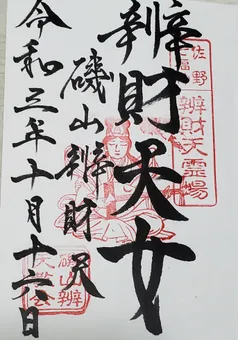 佐野
七福
辨財天霊場
辨財天女
磯山辨財天
令和三年十月十六日
磯山辨